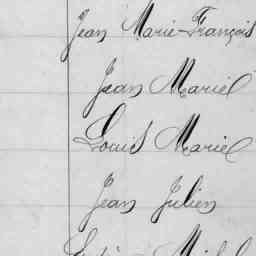 Jean Marie-François
Jean Mariel
Louis Mariel
Jean Julien